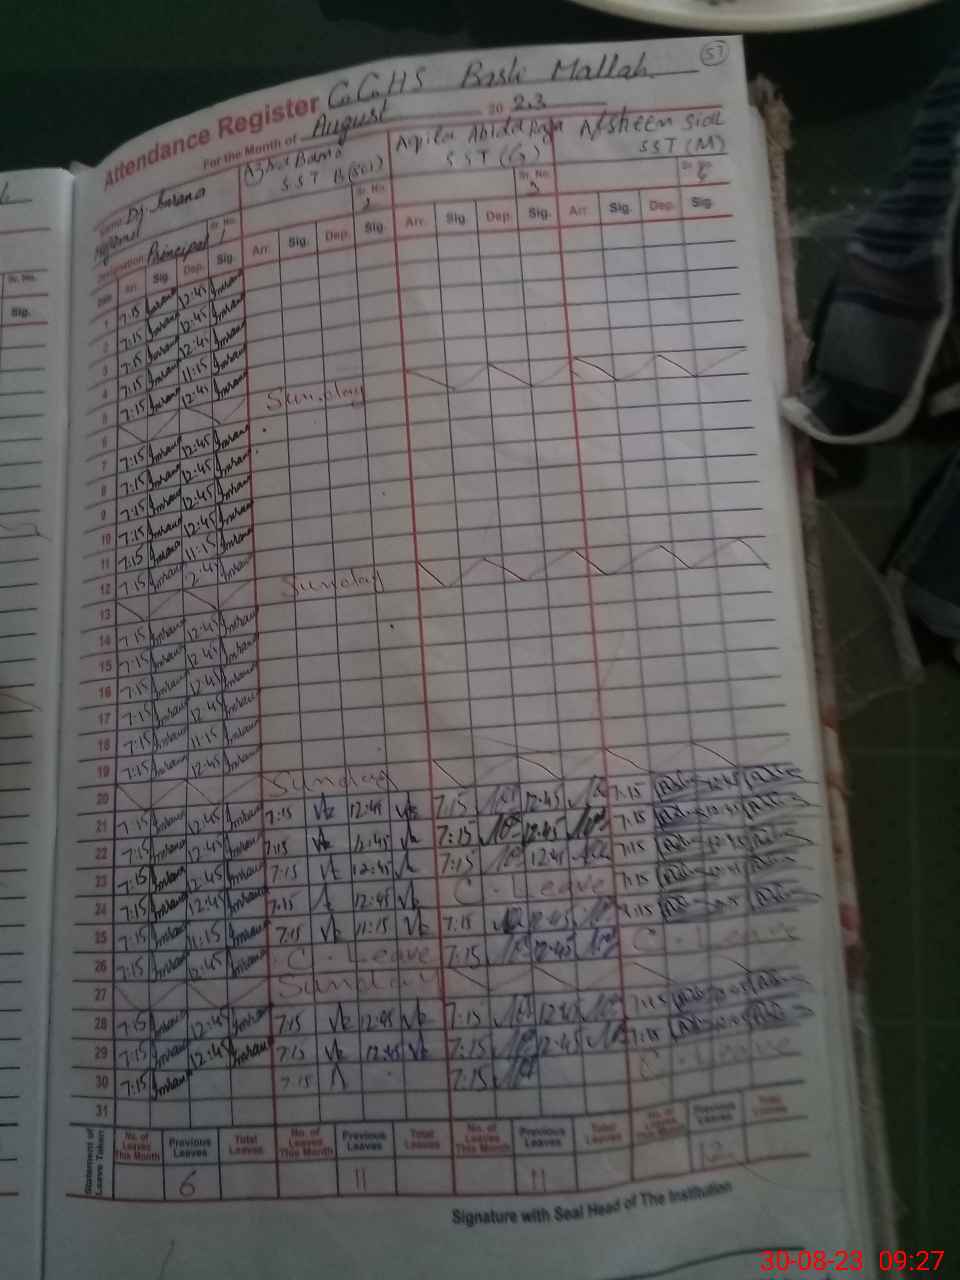 57
Attendance Register G.G.H.S Basti Mallah
For the Month of August 20 23
Name Dj. Imrana Azhra Bano Aqila Abida Afsheen Sial
Designation Principal Sr. No. 1 SST B(sci) Sr. No. SST (G) Sr. No. 3 SST (M) Sr. No.
Date Arr. Sig. Dep. Sig. Arr. Sig. Dep. Sig. Arr. Sig. Dep. Sig. Arr. Sig. Dep. Sig.
1 7:15 Imrana 12:45 Imrana
2 7:15 Imrana 12:45 Imrana
3 7:15 Imrana 12:45 Imrana
4 7:15 Imrana 11:15 Imrana
5 7:15 Imrana 12:45 Imrana
6 Sunday
7 7:15 Imrana 12:45 Imrana
8 7:15 Imrana 12:45 Imrana
9 7:15 Imrana 12:45 Imrana
10 7:15 Imrana 12:45 Imrana
11 7:15 Imrana 11:15 Imrana
12 7:15 Imrana 2:45 Imrana
13 Sunday
14 7:15 Imrana 12:45 Imrana
15 7:15 Imrana 12:45 Imrana
16 7:15 Imrana 12:45 Imrana
17 7:15 Imrana 12:45 Imrana
18 7:15 Imrana 11:15 Imrana
19 7:15 Imrana 12:45 Imrana
20 Sunday
21 7:15 Imrana 12:45 Imrana 7:15 12:45 7:15 12:45 7:15 12:45
22 7:15 Imrana 12:45 Imrana 7:15 12:45 7:15 12:45 7:15
23 7:15 Imrana 12:45 Imrana 7:15 12:45 7:15 12:45 7:15
24 7:15 Imrana 12:45 Imrana 7:15 12:45 C. Leave 7:15
25 7:15 Imrana 11:15 Imrana 7:15 11:15 7:15 12:45 7:15
26 7:15 Imrana 12:45 Imrana C. Leave 7:15 12:45 C. Leave
27 Sunday
28 7:15 Imrana 12:45 Imrana 7:15 12:45 7:15 12:45 7:15
29 7:15 Imrana 12:45 Imrana 7:15 12:45 7:15 12:45 7:15
30 7:15 Imrana 7:15 7:15 C. Leave
31
Statement of Leave Taken No. of Leaves This Month Previous Leaves Total Leaves No. of Leaves This Month Previous Leaves Total Leaves No. of Leaves This Month Previous Leaves Total Leaves No. of Leaves This Month Previous Leaves Total Leaves
6 11 11 12
Signature with Seal Head of The Institution
Sr. No.
Sig.
30-08-23 09:27